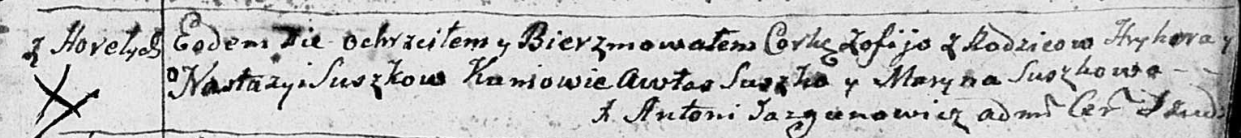 z Horełych Eodem Die ochrzciłem y Bierzmowałem Corkę Zofijo z Rodzicow Hryhora y
Nastazyi Suszkow Kumowie Awłas Suszko y Maryna Suszkowa
X Antoni Jazgunowicz adm Cer